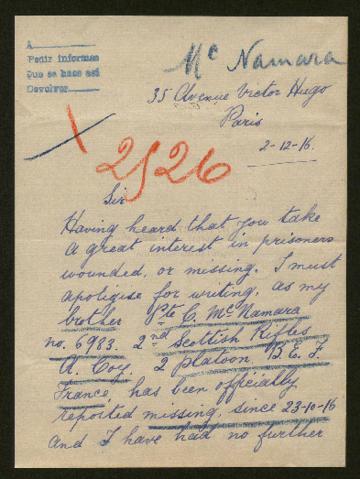 A
Pedir informes
Que se hace así
Devolver
Mc Namara
35 Avenue Victor Hugo
Paris
2-12-16.
2526
Sir
Having heard that you take
a great interest in prisoners
wounded, or missing. I must
apoligise for writing, as my
brother Pte C. McNamara
no. 6983. 2nd Scottish Rifles
A. Coy. 2 platoon B.E.F.
France, has been officially
reposted missing, since 23-10-16
and I have had no further